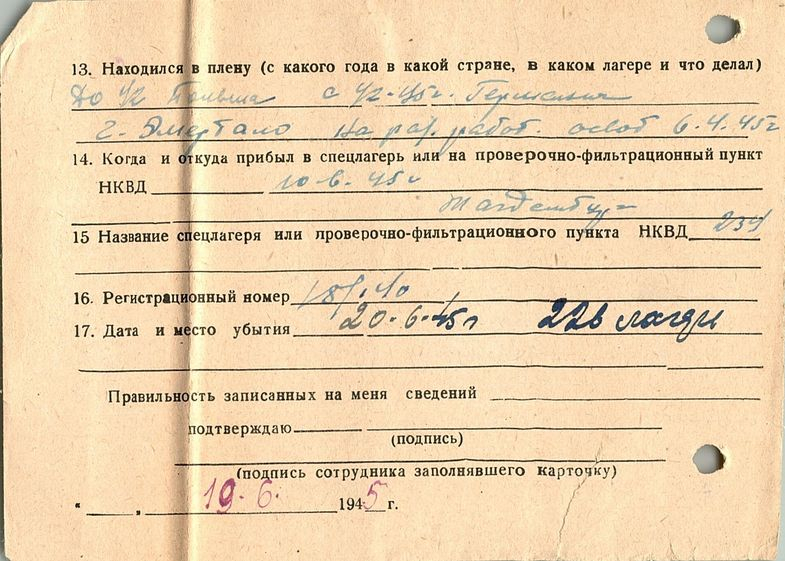 13. Находился в плену (с какого года в какой стране, в каком лагере и что делал)
До 42 Польша с 42-45г. Германия
г. на раз. работ. освоб 6.4.45г
14. Когда и откуда прибыл в спецлагерь или на проверочно-фильтрационный пункт
НКВД 10-6-45г
Магдембург
15 Название спецлагеря или проверочно-фильтрационного пункта НКВД 234
16. Регистрационный номер
17. Дата и место убытия 20-6-45г 226 лагерь
Правильность записанных на меня сведений
подтверждаю
(подпись)
(подпись сотрудника заполнявшего карточку)
" " 19.6. 1945 г.